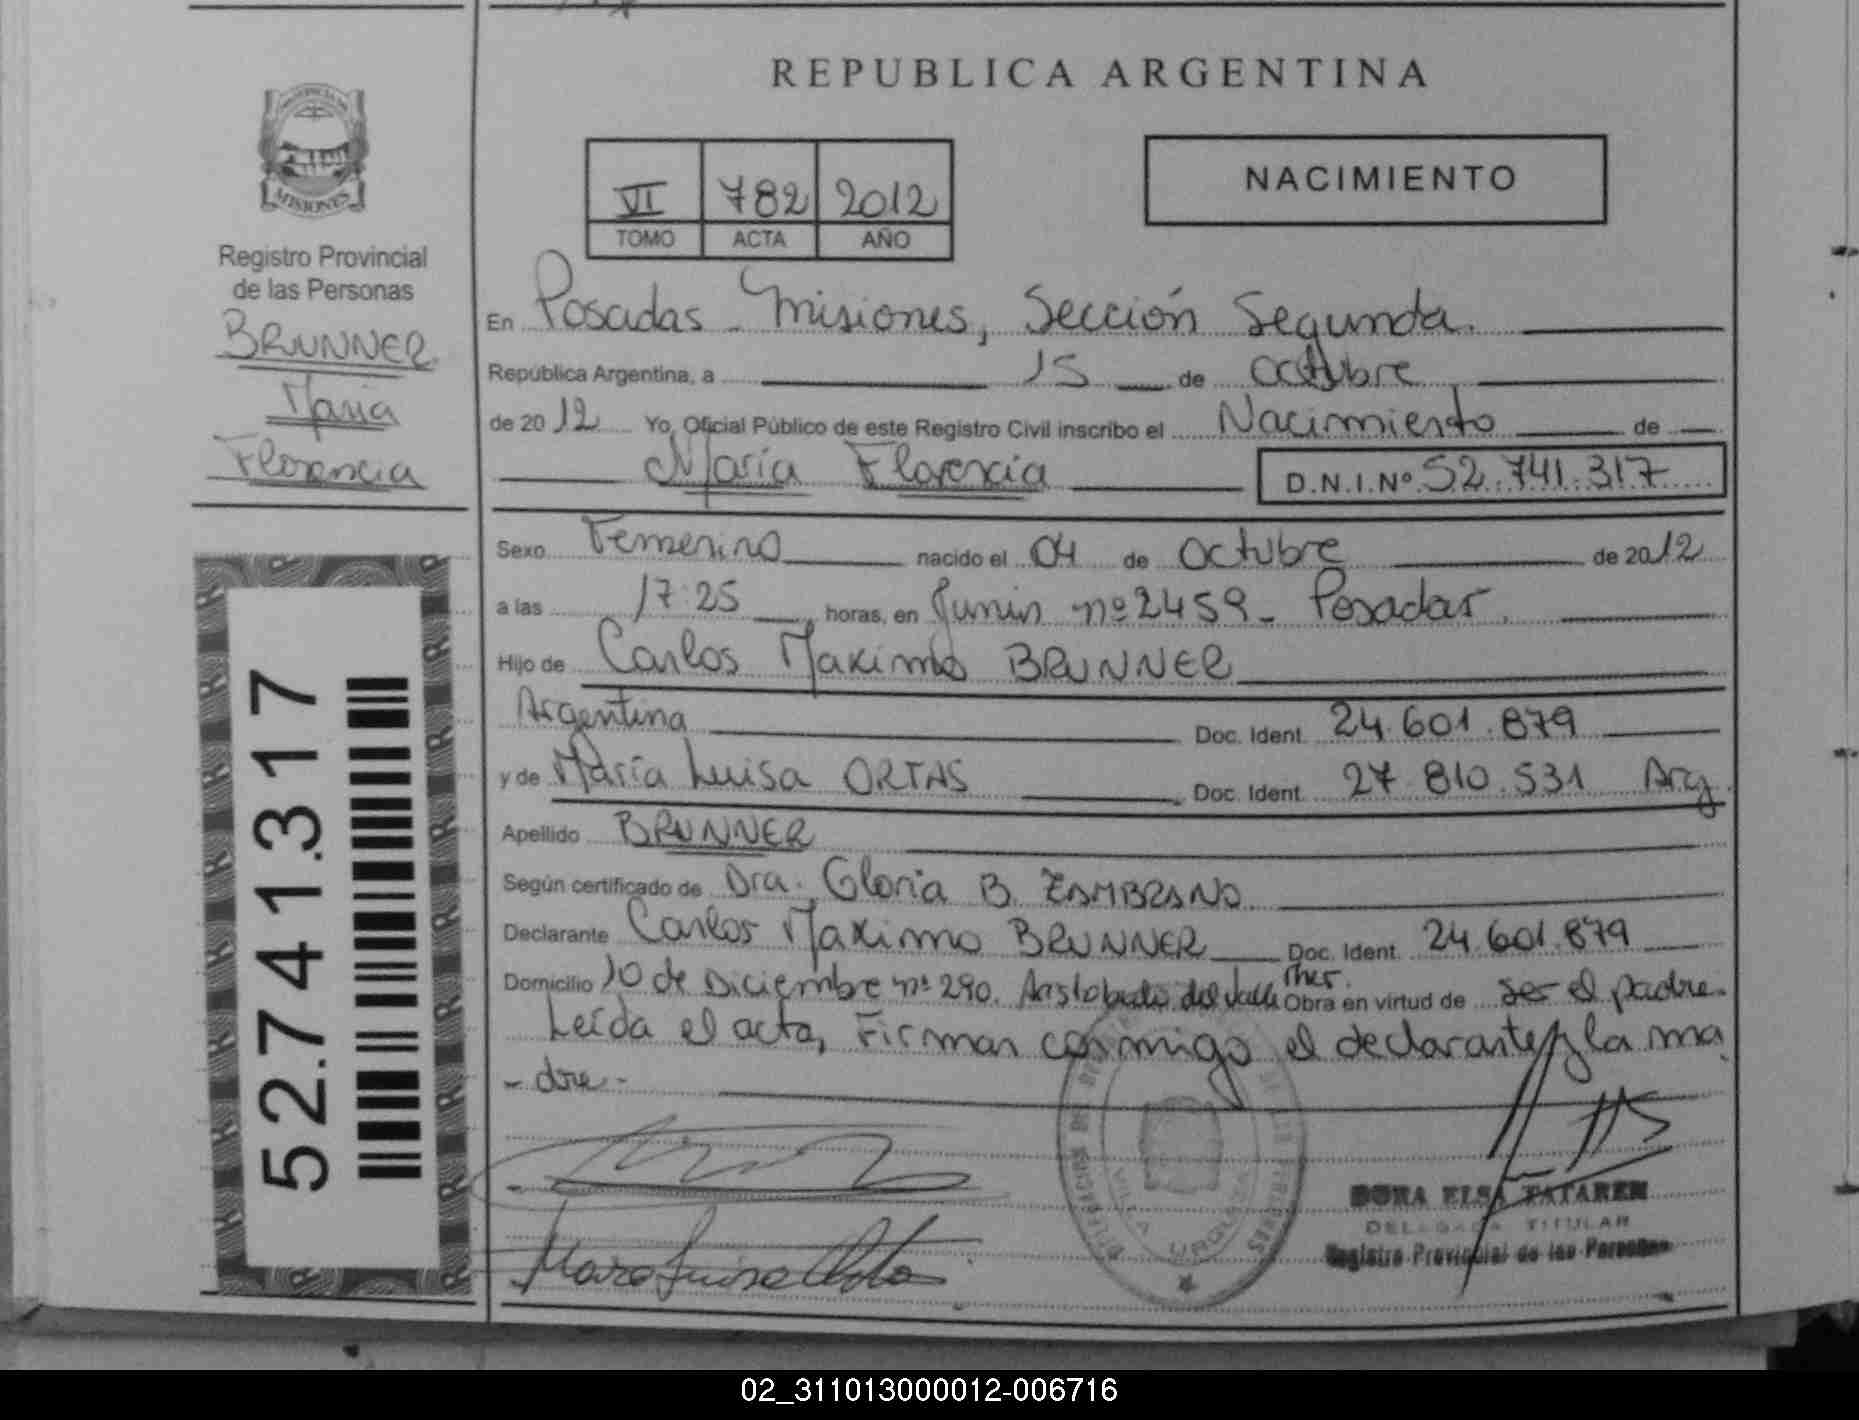 REPUBLICA ARGENTINA
PROVINCIA DE
MISIONES
Registro Provincial
de las Personas
BRUNNER
Maria
Florencia
VI 782 2012
TOMO ACTA AÑO
NACIMIENTO
En Posadas - Misiones, Sección Segunda.
República Argentina, a 15 de octubre
de 2012 Yo, Oficial Público de este Registro Civil inscribo el Nacimiento de
María Florencia D.N.I.Nº 52.741.317
Sexo Femenino nacido el 04 de octubre de 2012
a las 17:25 horas, en Junin nº 2459- Posadas.
Hijo de Carlos Maximo BRUNNER
Argentina Doc. Ident. 24.601.879
y de María Luisa ORTAS Doc. Ident. 27 810.531 Arg
Apellido BRUNNER
Según certificado de Dra. Gloria B. ZAMBRANO
Declarante Carlos Maximo BRUNNER Doc. Ident. 24.601.879
Domicilio 10 de Diciembre nº 290. Aristobulo del Valle Obra en virtud de ser el padre.
Leída el acta, Firman conmigo el declarante y la ma
- dre -
52.741.317
VILLA URQUIZA
DORA ELSA TATAREN
DELEGADA TITULAR
Registro Provincial de las Personas
02_311013000012-006716